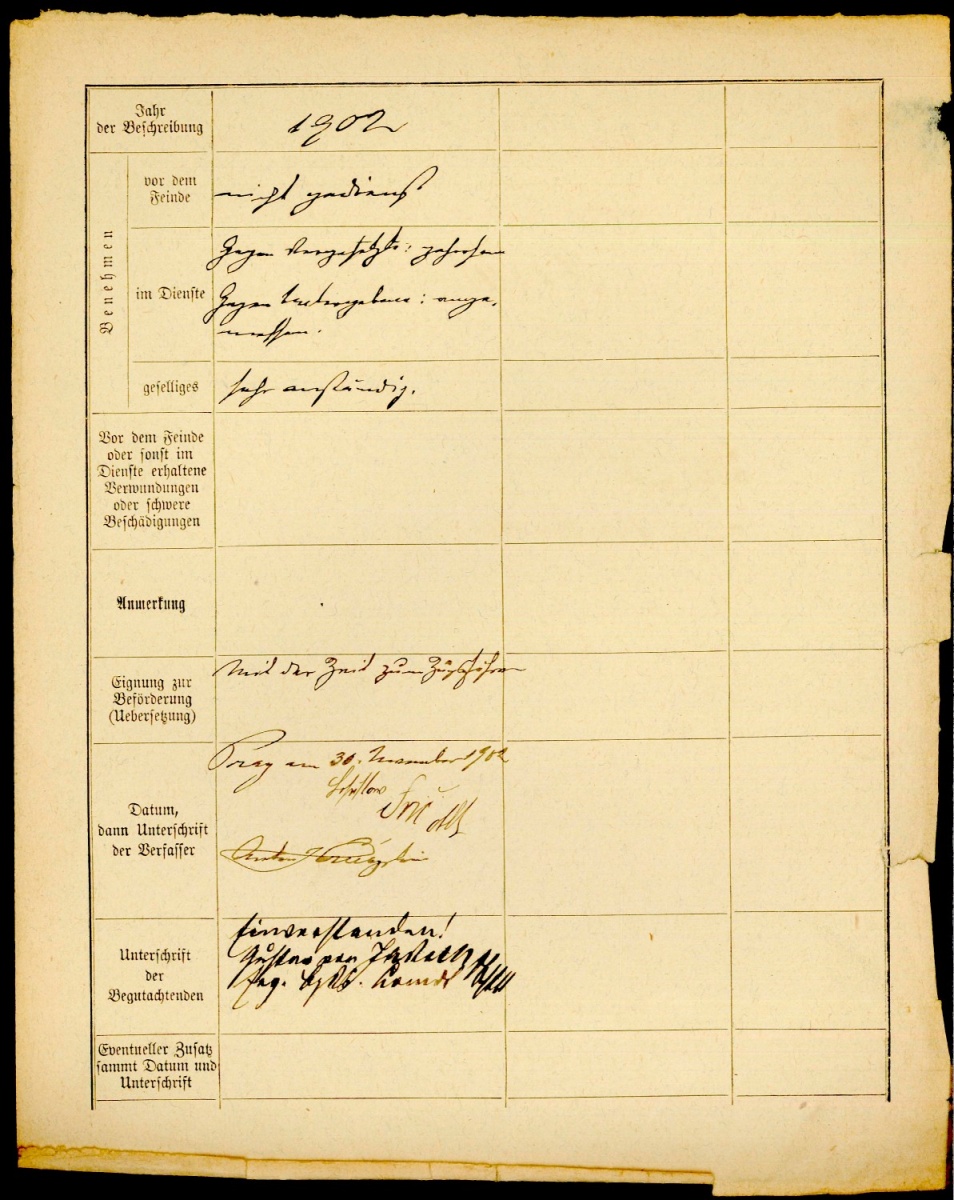 Jahr
der Beschreibung
1902
Benehmen
vor dem
Feinde
nicht gedient
im Dienste
Gegen Vorgesetzte: gehorsam
Gegen Untergebene: ange-
messen.
geselliges
sehr anständig.
Vor dem Feinde
oder sonst im
Dienste erhaltene
Verwundungen
oder schwere
Beschädigungen
Anmerkung
Eignung zur
Beförderung
(Uebersetzung)
Mit der Zeit zum Zugsführer
Datum,
dann Unterschrift
der Verfasser
Prag am 30. November 1902
Anton
Unterschrift
der
Begutachtenden
Einverstanden!
Gustav von
Eventueller Zusatz
sammt Datum und
Unterschrift